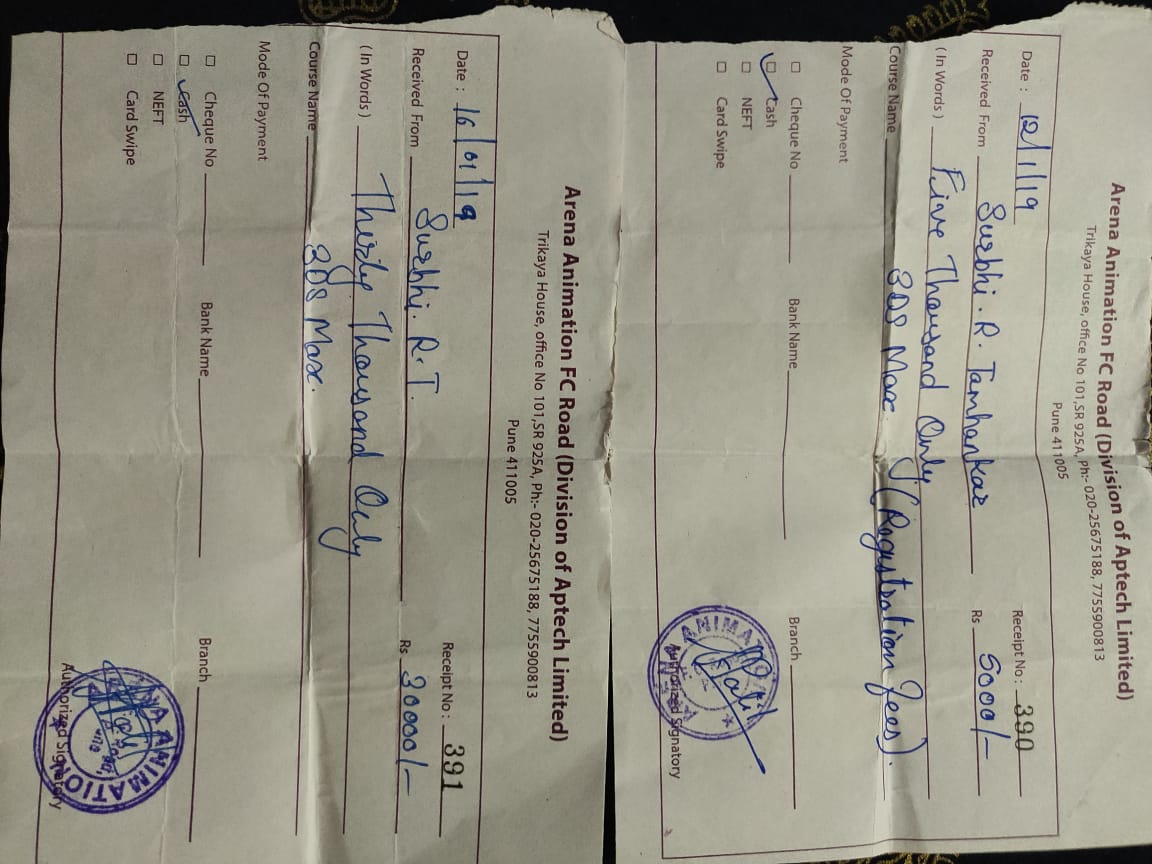 Arena Animation FC Road (Division of Aptech Limited)
Trikaya House, office No 101,SR 925A, Ph:- 020-25675188, 7755900813
Pune 411005
Date : 12/1/19 Receipt No : 390
Received From Surbhi. R. Tamhankar Rs 5000/-
( In Words ) Five Thousand Only
Course Name 3DS Max. (Registration fees).
Mode Of Payment
Cheque No Bank Name Branch
Cash
NEFT
Card Swipe
ANIMAT
Patil
Authorized Signatory
Arena Animation FC Road (Division of Aptech Limited)
Trikaya House, office No 101,SR 925A, Ph:- 020-25675188, 7755900813
Pune 411005
Date : 16/01/19 Receipt No : 391
Received From Surbhi. R. T. Rs 30000/-
( In Words ) Thirty Thousand Only
Course Name 3DS Max.
Mode Of Payment
Cheque No Bank Name Branch
Cash
NEFT
Card Swipe
ANIMATION
Authorized Signatory